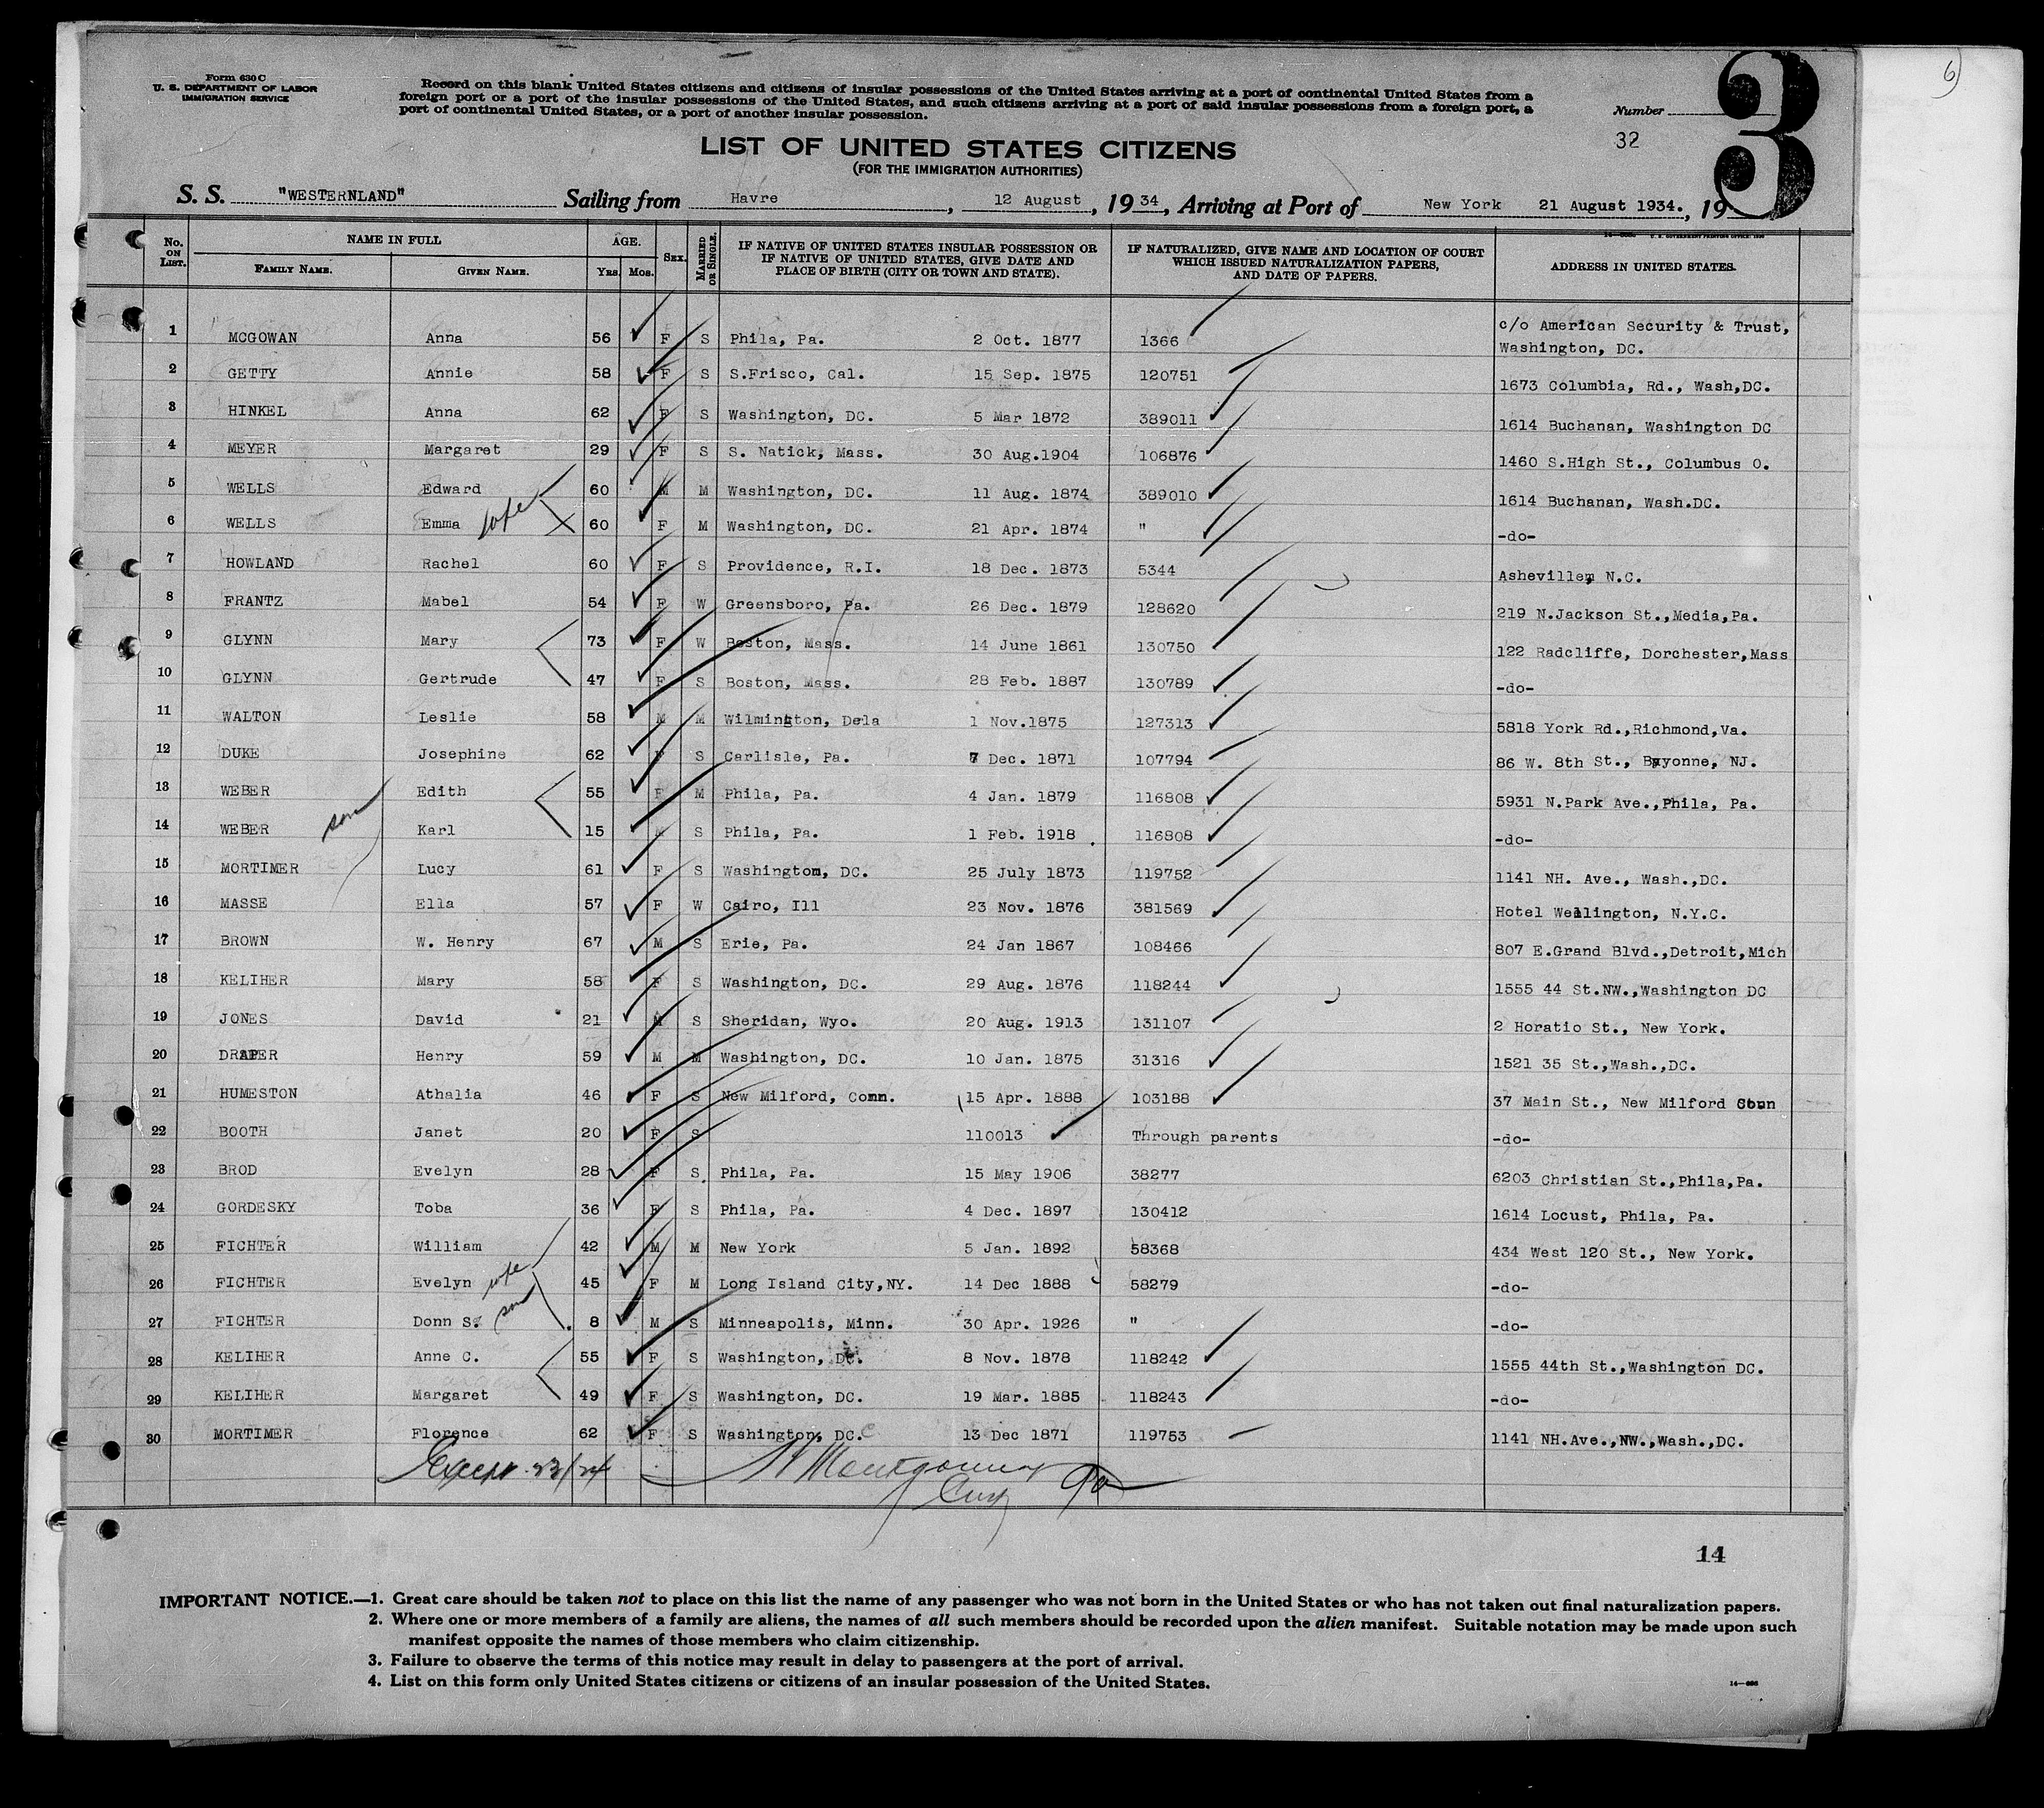 Form 630 C
U. S. DEPARTMENT OF LABOR
IMMIGRATION SERVICE
Record on this blank United States citizens and citizens of insular possessions of the United States arriving at a port of continental United States from a
foreign port or a port of the insular possessions of the United States, and such citizens arriving at a port of said insular possessions from a foreign port, a
port of continental United States, or a port of another insular possession.
Number
32
3
6
LIST OF UNITED STATES CITIZENS
(FOR THE IMMIGRATION AUTHORITIES)
S. S. "WESTERNLAND" Sailing from Havre, 12 August, 1934, Arriving at Port of New York 21 August 1934., 19
No. ON LIST. NAME IN FULL FAMILY NAME. GIVEN NAME. AGE. YRS. MOS. SEX. MARRIED OR SINGLE. IF NATIVE OF UNITED STATES INSULAR POSSESSION OR IF NATIVE OF UNITED STATES, GIVE DATE AND PLACE OF BIRTH (CITY OR TOWN AND STATE). IF NATURALIZED, GIVE NAME AND LOCATION OF COURT WHICH ISSUED NATURALIZATION PAPERS, AND DATE OF PAPERS. ADDRESS IN UNITED STATES.
1 MCGOWAN Anna 56 F S Phila, Pa. 2 Oct. 1877 1366 c/o American Security & Trust, Washington, DC.
2 GETTY Annie 58 F S S.Frisco, Cal. 15 Sep. 1875 120751 1673 Columbia, Rd., Wash,DC.
3 HINKEL Anna 62 F S Washington, DC. 5 Mar 1872 389011 1614 Buchanan, Washington DC
4 MEYER Margaret 29 F S S. Natick, Mass. 30 Aug.1904 106876 1460 S.High St., Columbus O.
5 WELLS Edward 60 M M Washington, DC. 11 Aug. 1874 389010 1614 Buchanan, Wash.DC.
6 WELLS Emma wife 60 F M Washington, DC. 21 Apr. 1874 " -do-
7 HOWLAND Rachel 60 F S Providence, R.I. 18 Dec. 1873 5344 Asheville, N.C.
8 FRANTZ Mabel 54 F W Greensboro, Pa. 26 Dec. 1879 128620 219 N.Jackson St.,Media,Pa.
9 GLYNN Mary 73 F W Boston, Mass. 14 June 1861 130750 122 Radcliffe, Dorchester,Mass
10 GLYNN Gertrude 47 F S Boston, Mass. 28 Feb. 1887 130789 -do-
11 WALTON Leslie 58 M M Wilmington, Dela 1 Nov.1875 127313 5818 York Rd.,Richmond,Va.
12 DUKE Josephine 62 F S Carlisle, Pa. 7 Dec. 1871 107794 86 W. 8th St., Bayonne, NJ.
13 WEBER Edith 55 F M Phila, Pa. 4 Jan. 1879 116808 5931 N.Park Ave.,Phila, Pa.
14 WEBER son Karl 15 M S Phila, Pa. 1 Feb. 1918 116808 -do-
15 MORTIMER Lucy 61 F S Washington, DC. 25 July 1873 119752 1141 NH. Ave., Wash.,DC.
16 MASSE Ella 57 F W Cairo, Ill 23 Nov. 1876 381569 Hotel Wellington, N.Y.C.
17 BROWN W. Henry 67 M S Erie, Pa. 24 Jan 1867 108466 807 E.Grand Blvd.,Detroit,Mich
18 KELIHER Mary 58 F S Washington, DC. 29 Aug. 1876 118244 1555 44 St.NW.,Washington DC
19 JONES David 21 M S Sheridan, Wyo. 20 Aug. 1913 131107 2 Horatio St., New York.
20 DRAPER Henry 59 M M Washington, DC. 10 Jan. 1875 31316 1521 35 St.,Wash.,DC.
21 HUMESTON Athalia 46 F S New Milford, Conn. 15 Apr. 1888 103188 37 Main St., New Milford Conn
22 BOOTH Janet 20 F S 110013 Through parents -do-
23 BROD Evelyn 28 F S Phila, Pa. 15 May 1906 38277 6203 Christian St.,Phila,Pa.
24 GORDESKY Toba 36 F S Phila, Pa. 4 Dec. 1897 130412 1614 Locust, Phila, Pa.
25 FICHTER William 42 M M New York 5 Jan. 1892 58368 434 West 120 St., New York.
26 FICHTER Evelyn wife 45 F M Long Island City,NY. 14 Dec 1888 58279 -do-
27 FICHTER Donn S. son 8 M S Minneapolis, Minn. 30 Apr. 1926 " -do-
28 KELIHER Anne C. 55 F S Washington, DC. 8 Nov. 1878 118242 1555 44th St.,Washington DC.
29 KELIHER Margaret 49 F S Washington, DC. 19 Mar. 1885 118243 -do-
30 MORTIMER Florence 62 F S Washington, DC. 13 Dec 1871 119753 1141 NH.Ave.,NW.,Wash.,DC.
Except 23/24 Montgomery
14
IMPORTANT NOTICE.—1. Great care should be taken not to place on this list the name of any passenger who was not born in the United States or who has not taken out final naturalization papers.
2. Where one or more members of a family are aliens, the names of all such members should be recorded upon the alien manifest. Suitable notation may be made upon such
manifest opposite the names of those members who claim citizenship.
3. Failure to observe the terms of this notice may result in delay to passengers at the port of arrival.
4. List on this form only United States citizens or citizens of an insular possession of the United States.